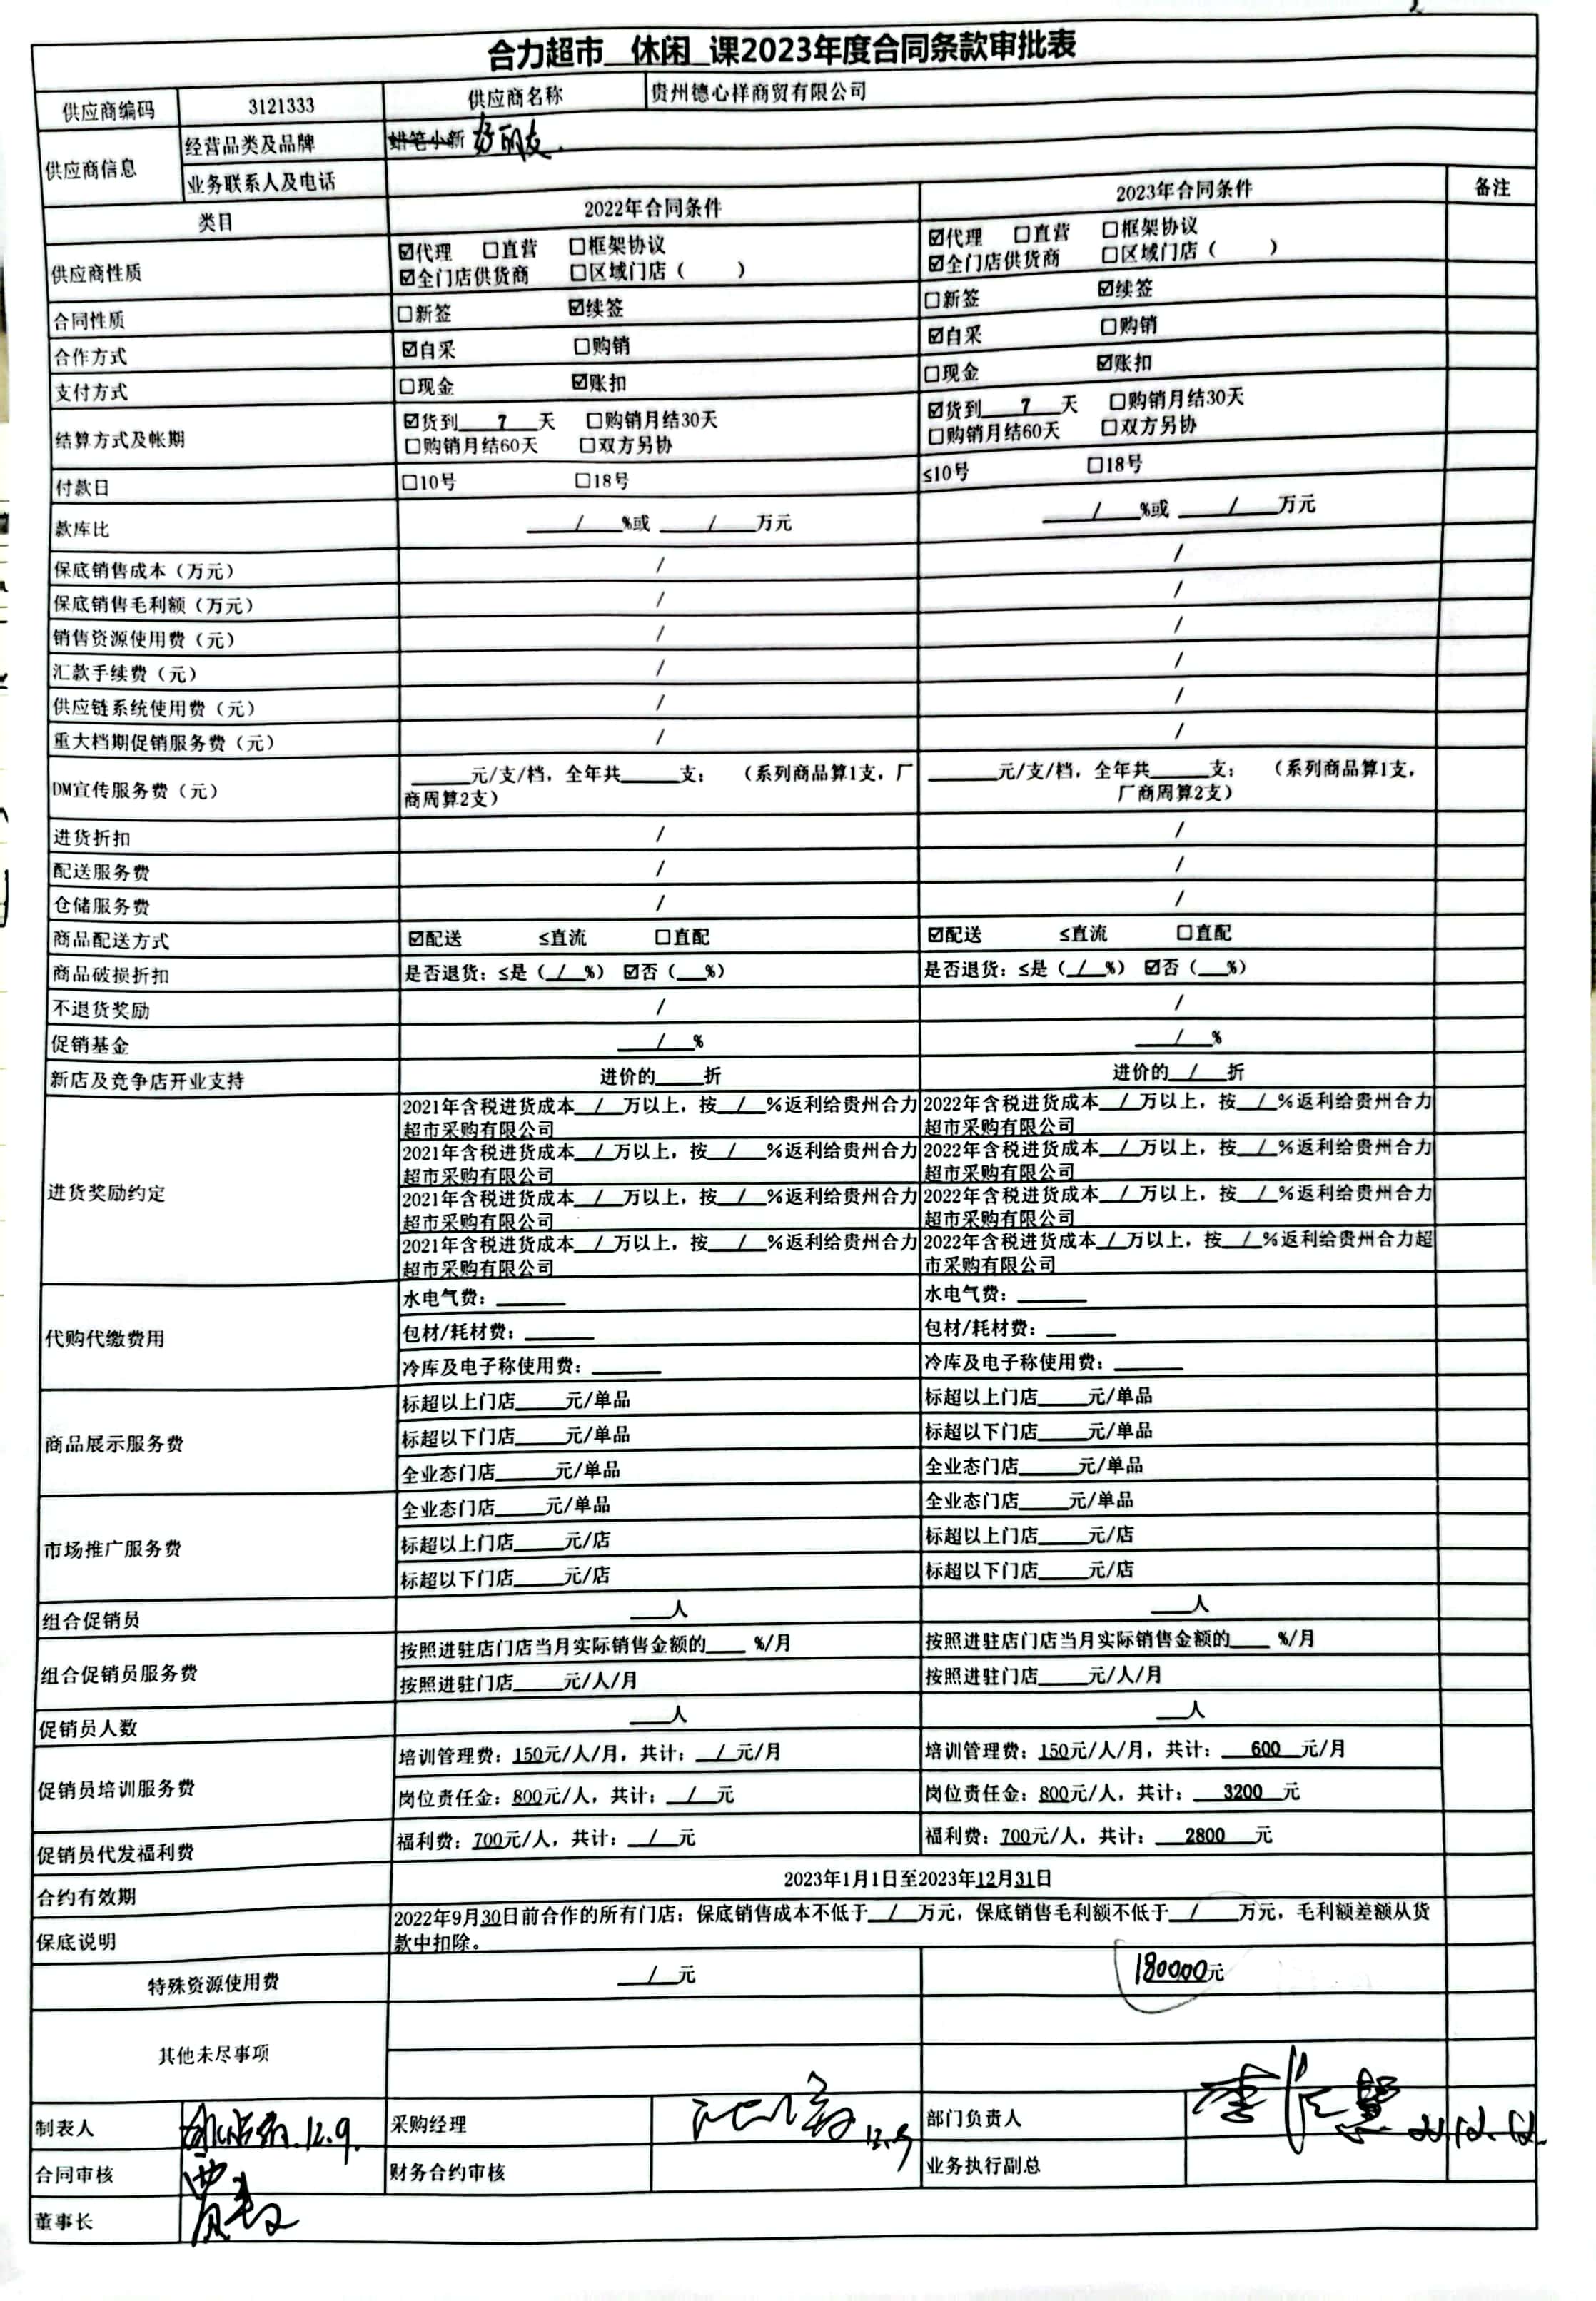 合力超市 休闲 课2023年度合同条款审批表
供应商编码 3121333 供应商名称 贵州德心祥商贸有限公司
供应商信息 经营品类及品牌 蜡笔小新 好丽友.
业务联系人及电话
类目 2022年合同条件 2023年合同条件 备注
供应商性质 ☑代理 □直营 □框架协议 ☑代理 □直营 □框架协议
☑全门店供货商 □区域门店（ ） ☑全门店供货商 □区域门店（ ）
合同性质 □新签 ☑续签 □新签 ☑续签
合作方式 ☑自采 □购销 ☑自采 □购销
支付方式 □现金 ☑账扣 □现金 ☑账扣
结算方式及帐期 ☑货到 7 天 □购销月结30天 ☑货到 7 天 □购销月结30天
□购销月结60天 □双方另协 □购销月结60天 □双方另协
付款日 □10号 □18号 ≤10号 □18号
款库比 / %或 / 万元 / %或 / 万元
保底销售成本（万元） / /
保底销售毛利额（万元） / /
销售资源使用费（元） / /
汇款手续费（元） / /
供应链系统使用费（元） / /
重大档期促销服务费（元） / /
DM宣传服务费（元） ____元/支/档，全年共____支； （系列商品算1支，厂商周算2支） ____元/支/档，全年共____支； （系列商品算1支，厂商周算2支）
进货折扣 / /
配送服务费 / /
仓储服务费 / /
商品配送方式 ☑配送 ≤直流 □直配 ☑配送 ≤直流 □直配
商品破损折扣 是否退货：≤是（ / %） ☑否（__%） 是否退货：≤是（ / %） ☑否（__%）
不退货奖励 / /
促销基金 / % / %
新店及竞争店开业支持 进价的____折 进价的 / 折
进货奖励约定 2021年含税进货成本 / 万以上，按 / %返利给贵州合力超市采购有限公司 2022年含税进货成本 / 万以上，按 / %返利给贵州合力超市采购有限公司
2021年含税进货成本 / 万以上，按 / %返利给贵州合力超市采购有限公司 2022年含税进货成本 / 万以上，按 / %返利给贵州合力超市采购有限公司
2021年含税进货成本 / 万以上，按 / %返利给贵州合力超市采购有限公司 2022年含税进货成本 / 万以上，按 / %返利给贵州合力超市采购有限公司
2021年含税进货成本 / 万以上，按 / %返利给贵州合力超市采购有限公司 2022年含税进货成本 / 万以上，按 / %返利给贵州合力超市采购有限公司
代购代缴费用 水电气费：____ 水电气费：____
包材/耗材费：____ 包材/耗材费：____
冷库及电子称使用费：____ 冷库及电子称使用费：____
商品展示服务费 标超以上门店____元/单品 标超以上门店____元/单品
标超以下门店____元/单品 标超以下门店____元/单品
全业态门店____元/单品 全业态门店____元/单品
市场推广服务费 全业态门店____元/单品 全业态门店____元/单品
标超以上门店____元/店 标超以上门店____元/店
标超以下门店____元/店 标超以下门店____元/店
组合促销员 ____人 ____人
组合促销员服务费 按照进驻店门店当月实际销售金额的____ %/月 按照进驻店门店当月实际销售金额的____ %/月
按照进驻门店____元/人/月 按照进驻门店____元/人/月
促销员人数 ____人 ____人
促销员培训服务费 培训管理费：150元/人/月，共计： / 元/月 培训管理费：150元/人/月，共计： 600 元/月
岗位责任金：800元/人，共计： / 元 岗位责任金：800元/人，共计： 3200 元
促销员代发福利费 福利费：700元/人，共计： / 元 福利费：700元/人，共计： 2800 元
合约有效期 2023年1月1日至2023年12月31日
保底说明 2022年9月30日前合作的所有门店：保底销售成本不低于 / 万元，保底销售毛利额不低于 / 万元，毛利额差额从货款中扣除。
特殊资源使用费 / 元 180000元
其他未尽事项
制表人 12.9. 采购经理 12.9 部门负责人
合同审核 财务合约审核 业务执行副总
董事长